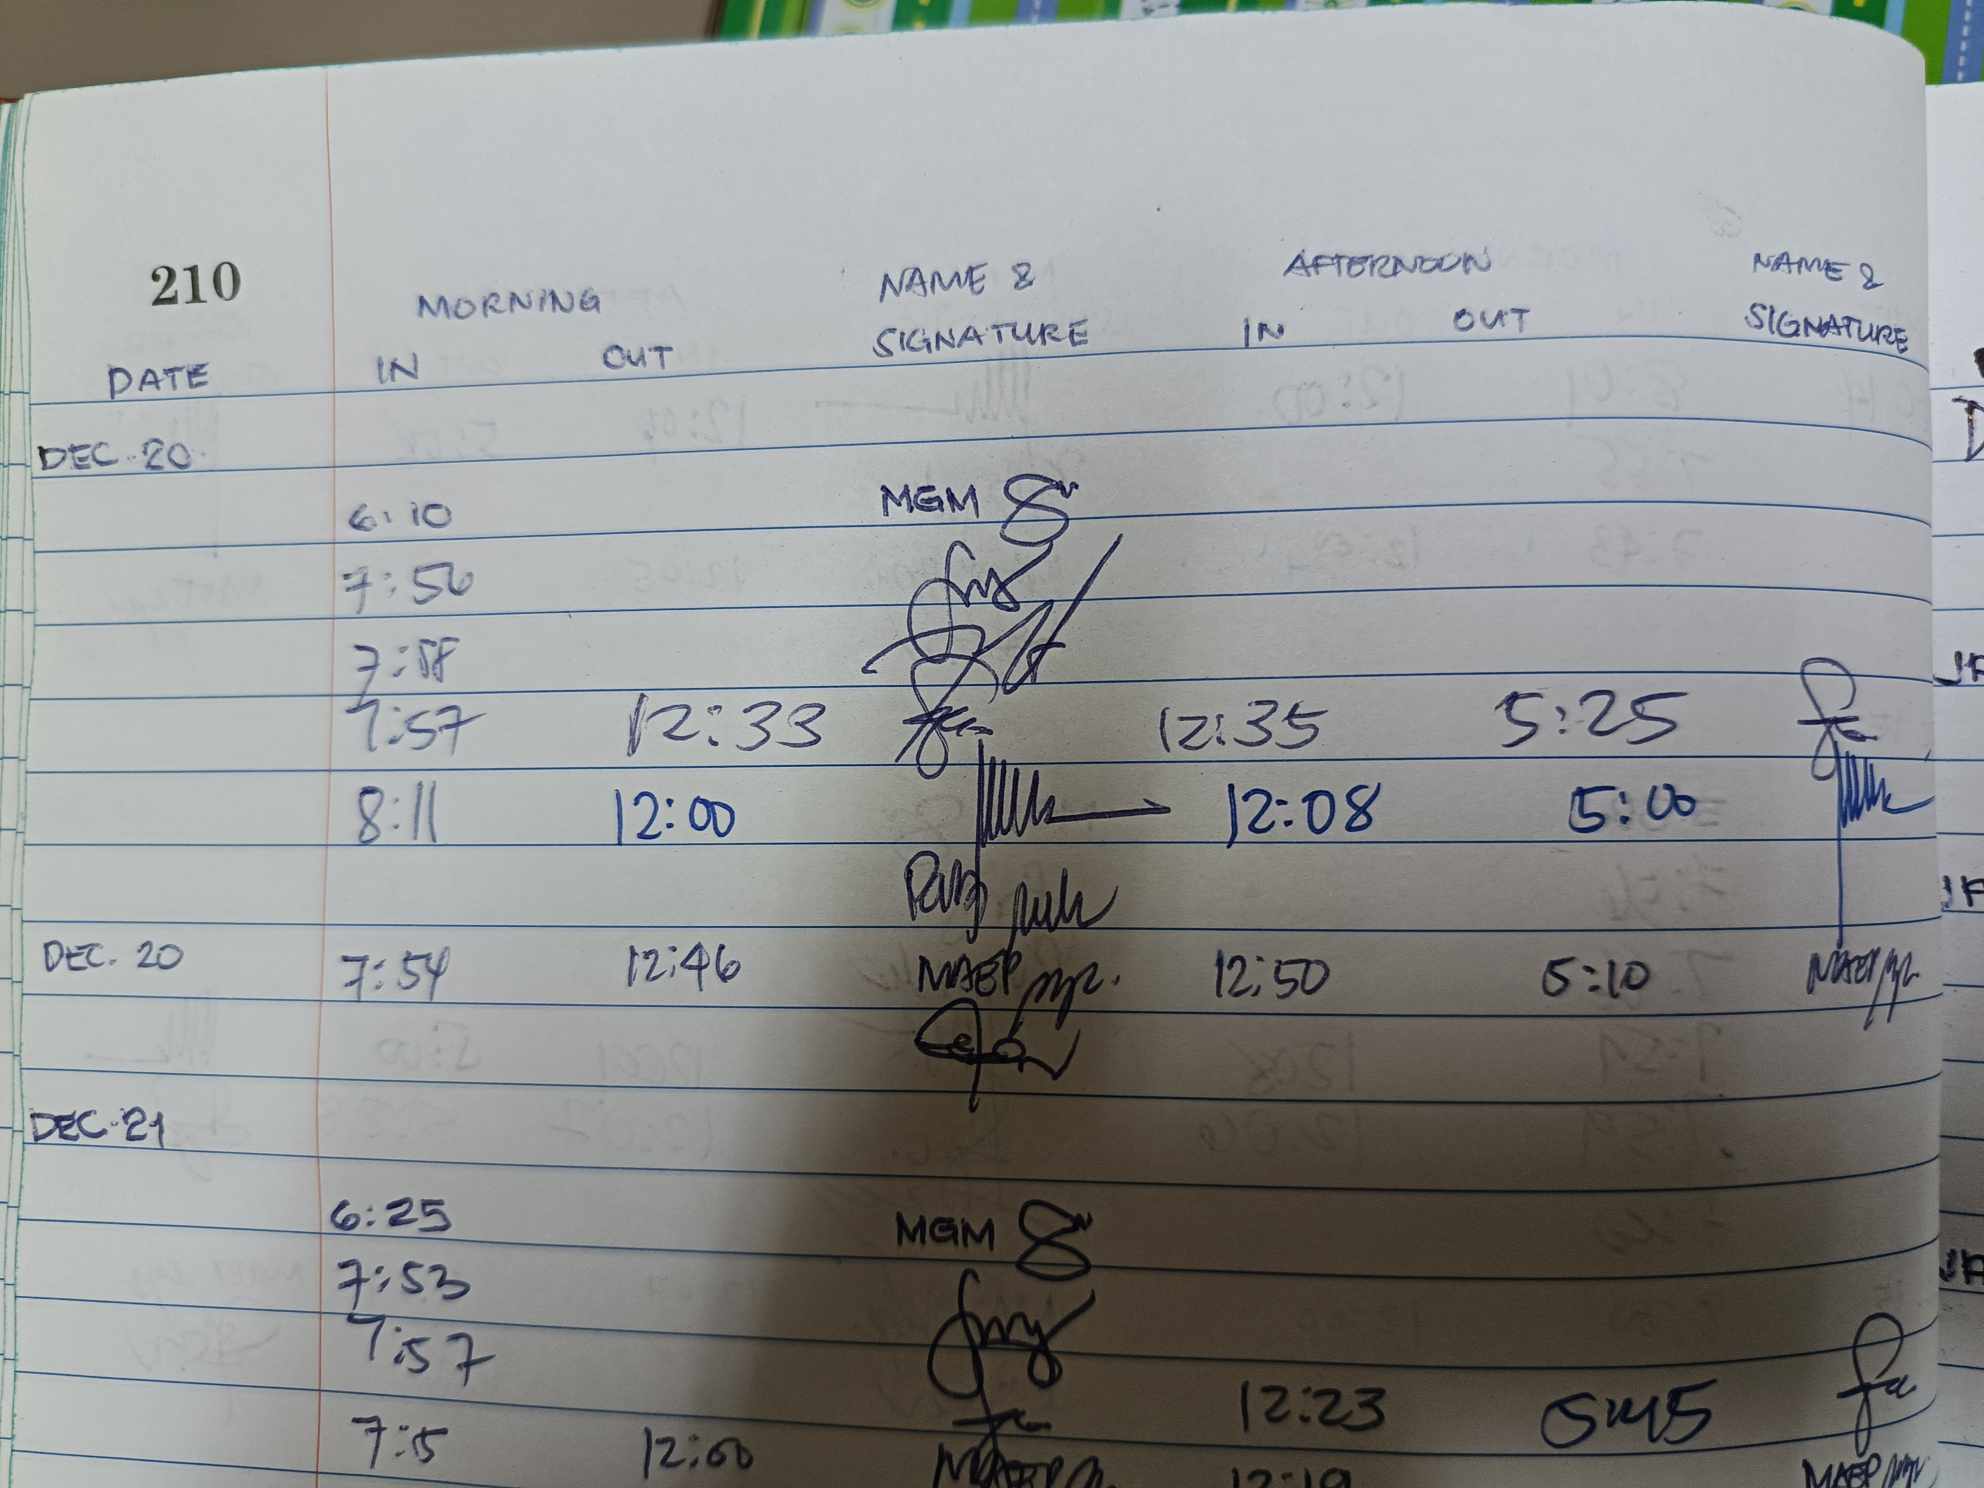 210 MORNING NAME & AFTERNOON NAME &
DATE IN OUT SIGNATURE IN OUT SIGNATURE
DEC. 20
6:10 MGM
7:56
7:58
7:57 12:33 12:35 5:25
8:11 12:00 12:08 5:00
DEC. 20 7:54 12:46 MAEP 12:50 5:10 MAEP
DEC. 21
6:25 MGM
7:53
7:57 12:23
7:5 12:00 MAEP 12:19 MAEP